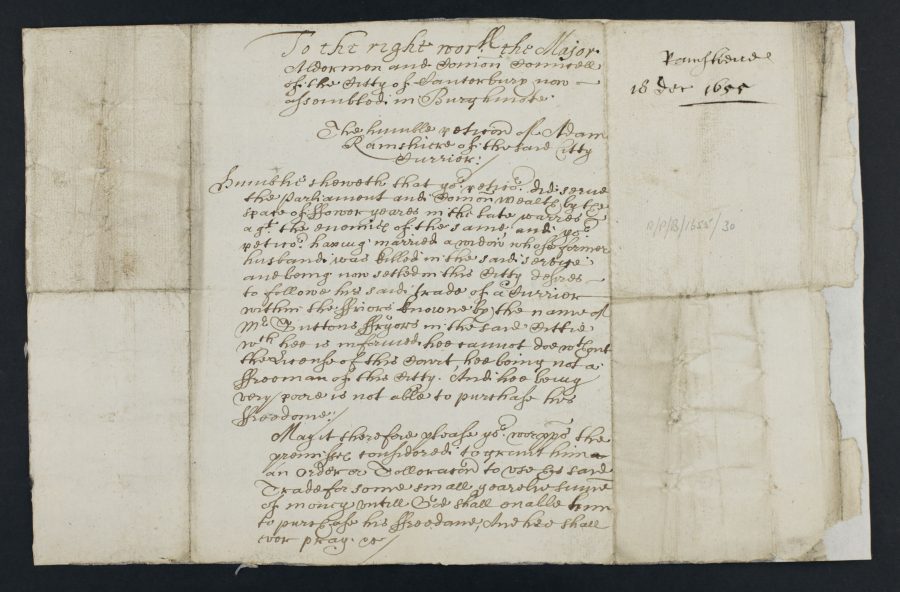 To the right worll the Maior
Aldermen and Comon Councell
of the Citty of Canterbury now
assembled in Burghmote
The humble peticon of Adam
Ramshire of the said Citty
Currier:/
Humblie sheweth that yor petior did serve
the Parliament and Comon wealth by the
space of ffower yeares in the late warres
agt the enemies of the same, and yor
petior having married a widow whose former
husband was killed in the said service
and being now setled in this Citty desires
to followe his said trade of a Currier
within the ffriors knowne by the name of
Mr Buttons ffryors in the said Cittie
wch hee is informed hee cannot doe wthout
the License of this Court, hee being not a
ffreeman of this Citty. And hee being
very poore is not able to purchase his
ffreedome:/
May it therefore please yor worpps the
premisses considered to grant him
an order or Tolleracon to use his said
Trade for some small yearelie summe
of money untill God shall enable him
to purchase his ffreedome, And hee shall
ever pray. &c/
18 Dec 1655
A/P/B/1655/30